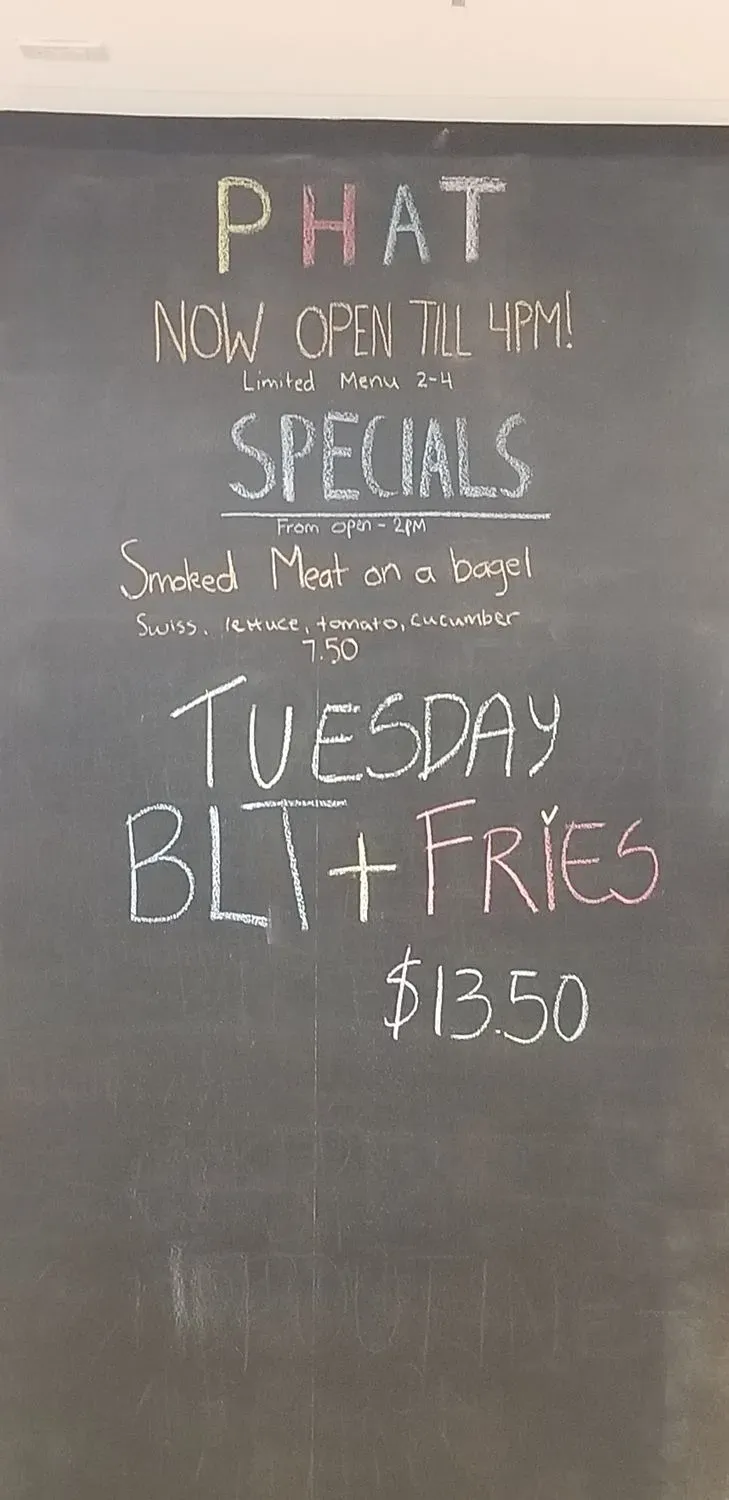 PHAT
NOW OPEN TILL 4PM!
Limited Menu 2-4
SPECIALS
From open - 2PM
Smoked Meat on a bagel
Swiss, lettuce, tomato, cucumber
7.50
TUESDAY
BLT + FRIES
$13.50